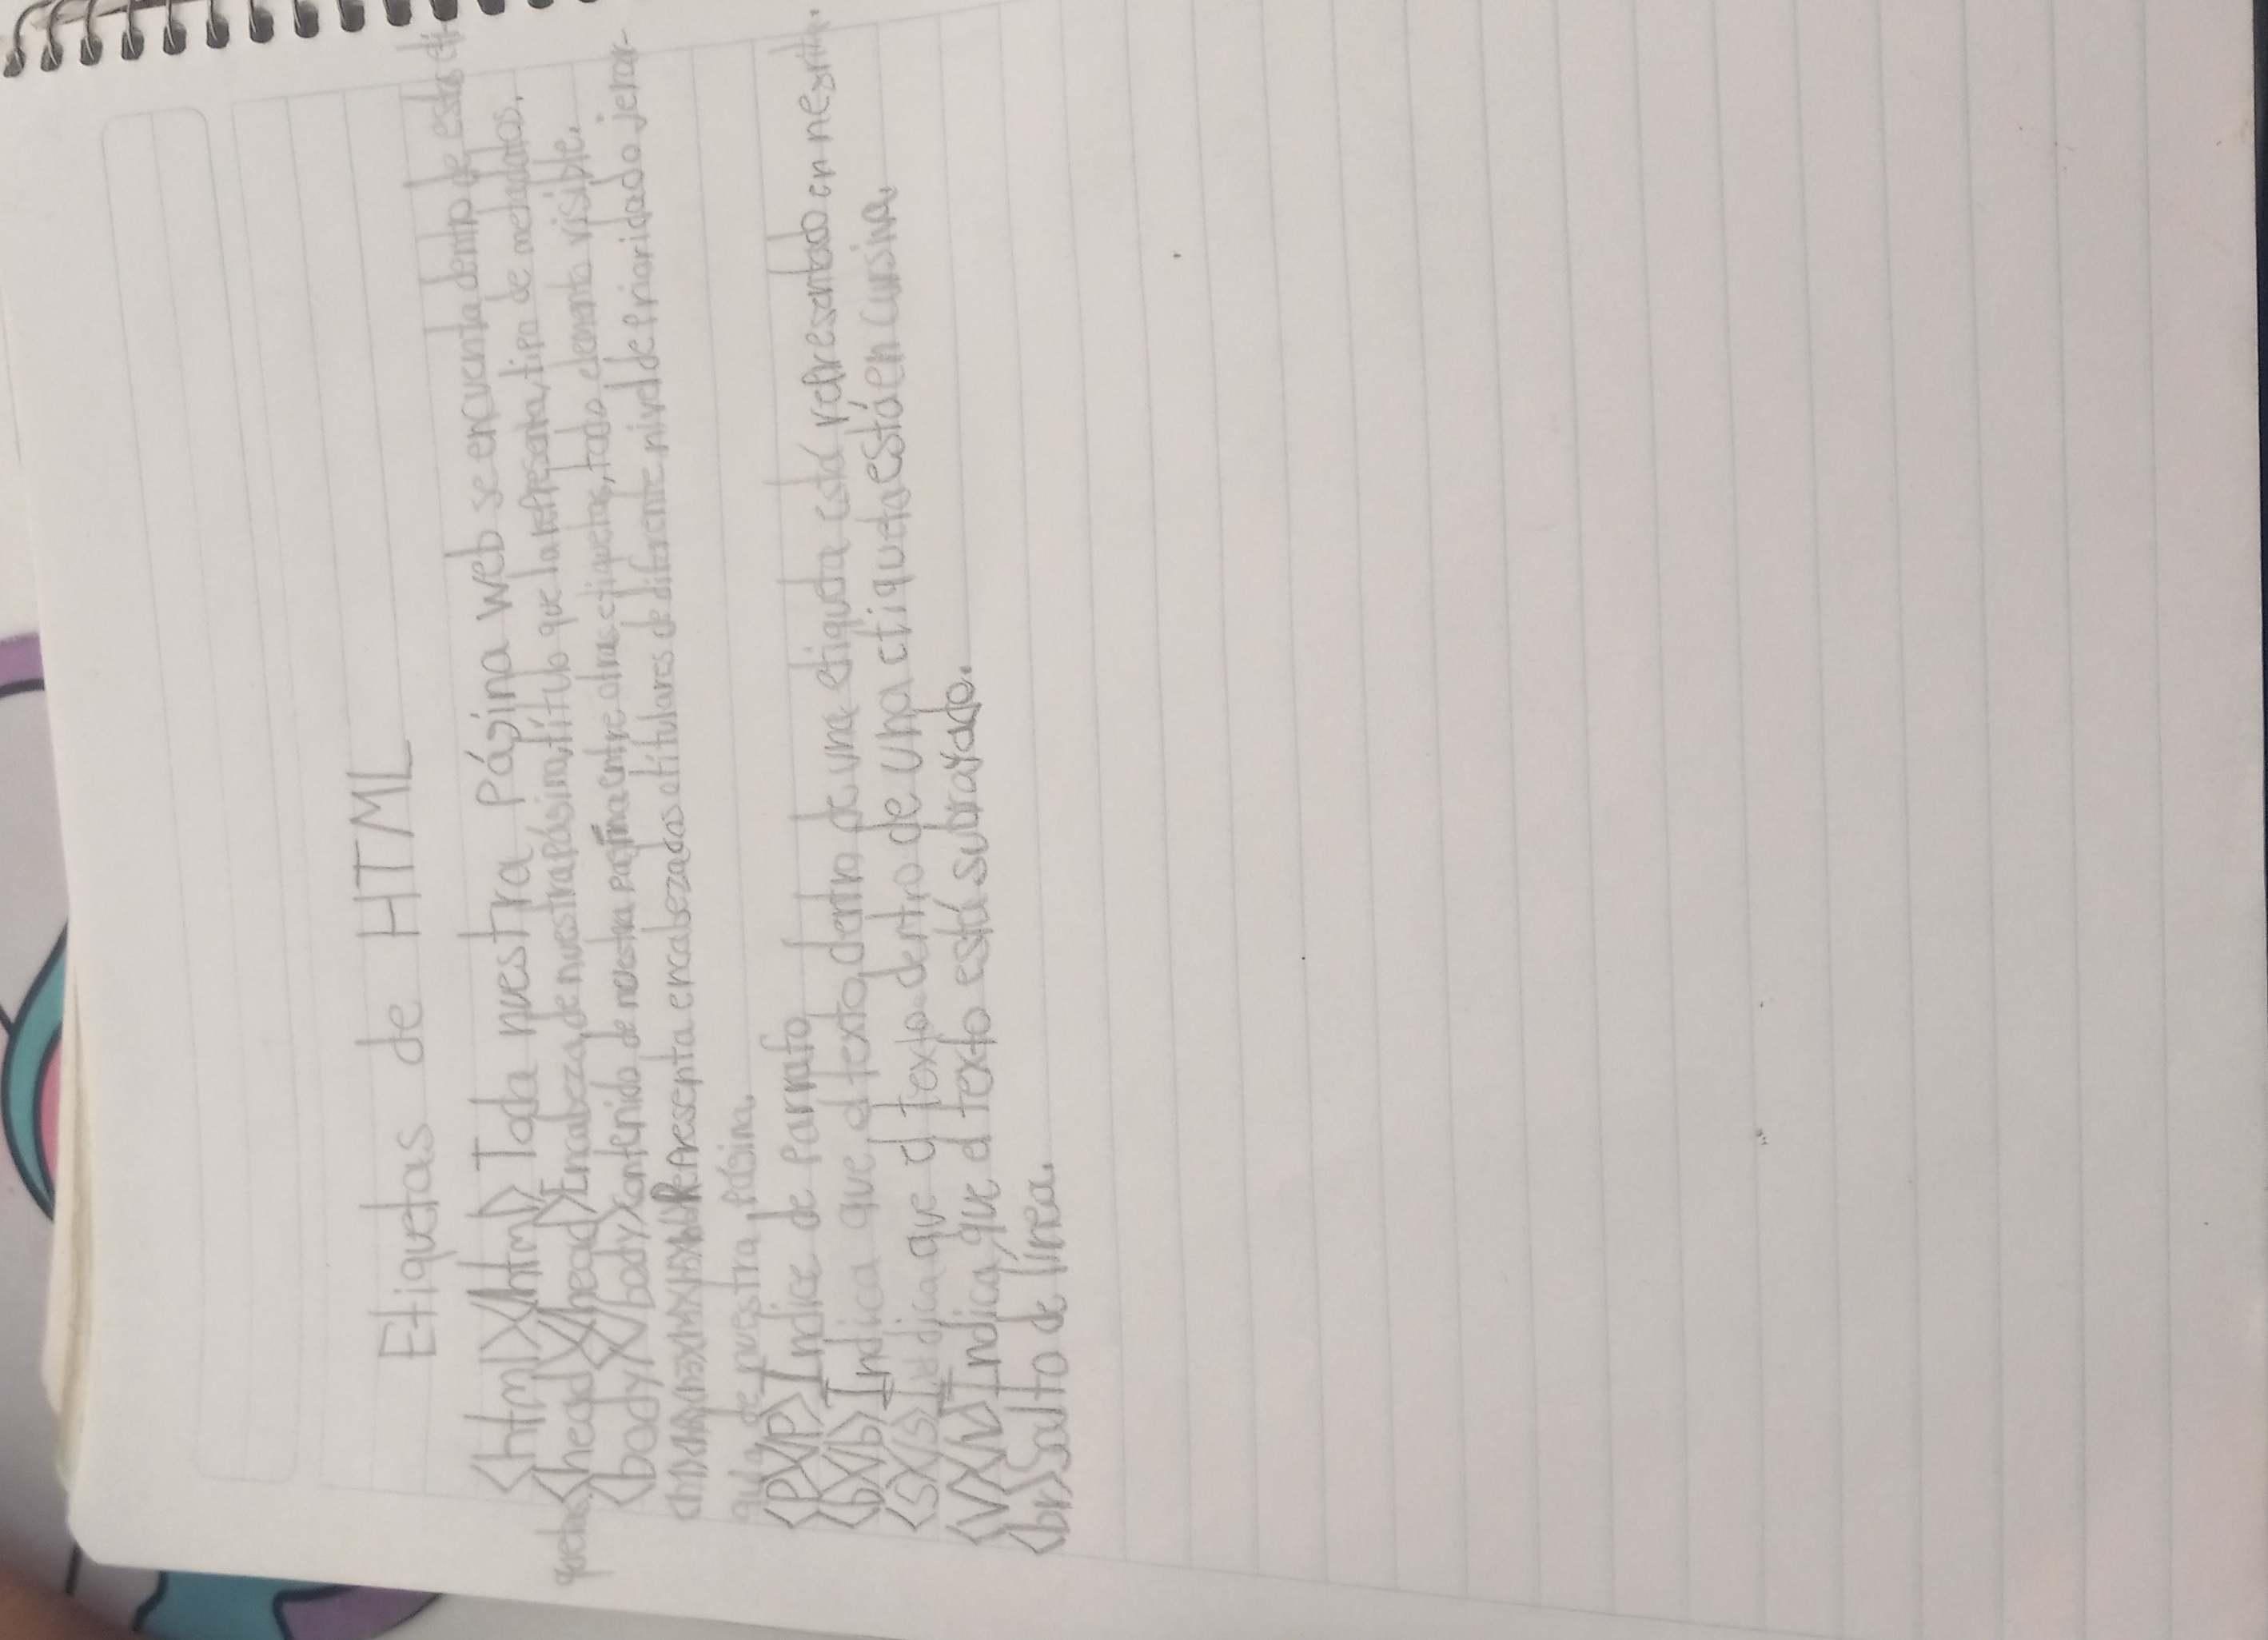 Etiquetas de HTML
<html></html> Toda nuestra Página web se encuenta dentro de esta eti-
quetas. <head></head> Encabeza de nuestra Página, título que la representa, tipo de metadatos.
<body></body> contenido de nuestra pagina entre otras etiquetas, todo elemento visible.
<h1><h2><h3><h4><h5><h6> Representa encabezados o titulares de diferente nivel de Prioridad o jerar-
quia de nuestra Página.
<P></P> Indice de Parrafo
<b></b> Indica que el texto dentro de una etiqueta está representado en negrita.
<s></s> Indica que el texto dentro de una etiqueta está en cursiva.
<V></V> Indica que el texto está subrayado.
<br> Salto de línea.